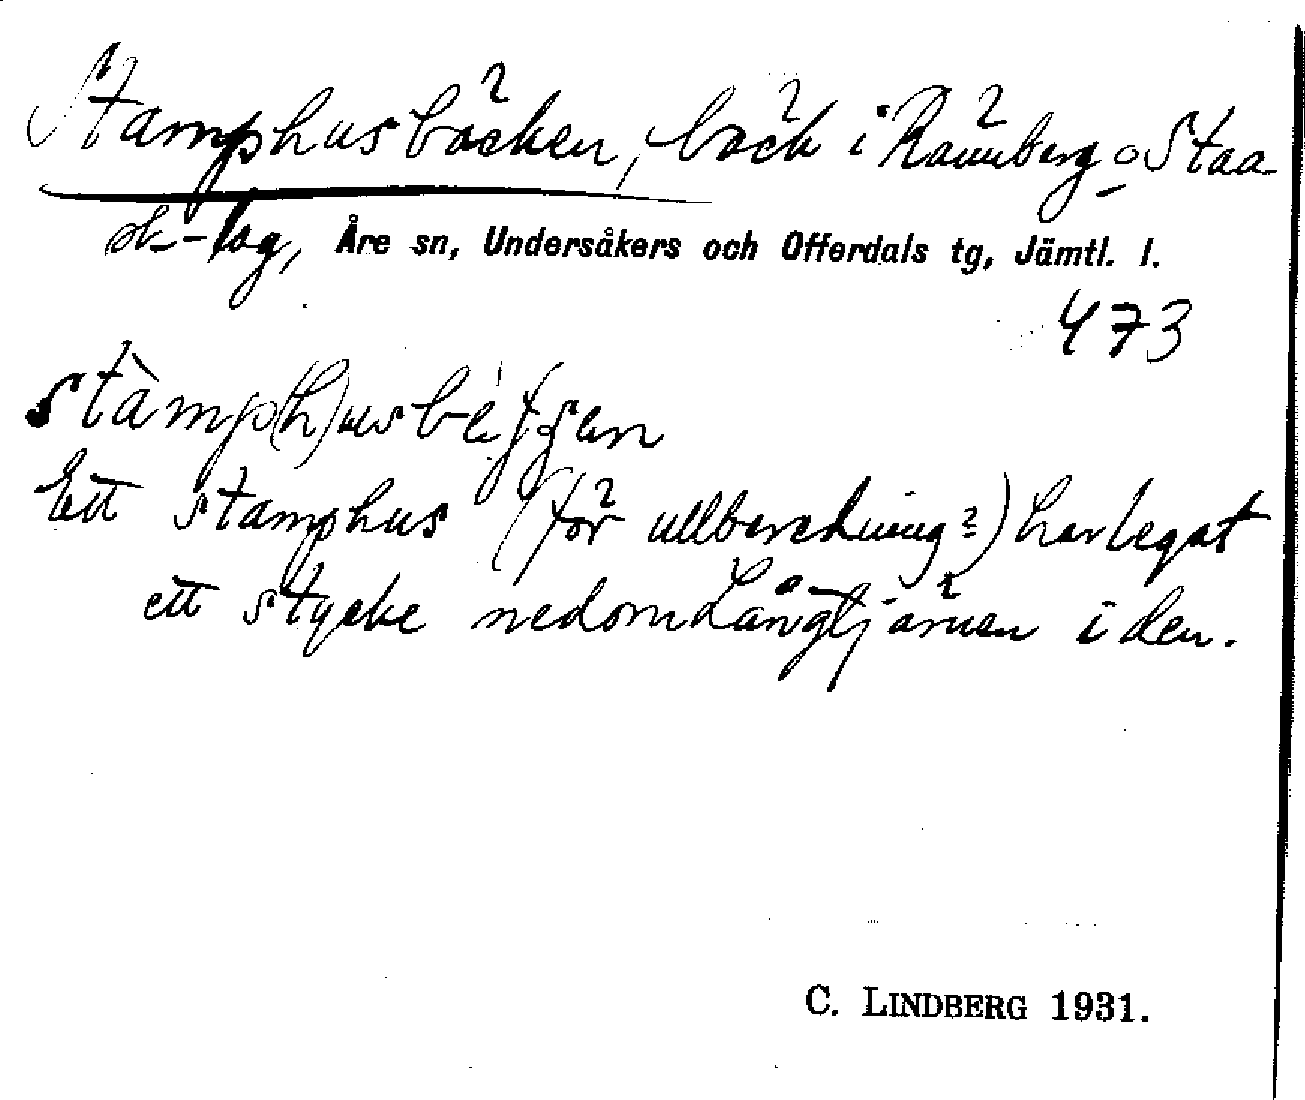 Stamphusbäcken, bäck i Rännberg o Staa
sk-lag, Åre sn, Undersåkers och Offerdals tg, Jämtl. l.
473
Ett stamphus (för ullberedning?) har legat
ett stycke nedom Långtjärnen i den.
C. LINDBERG 1931.